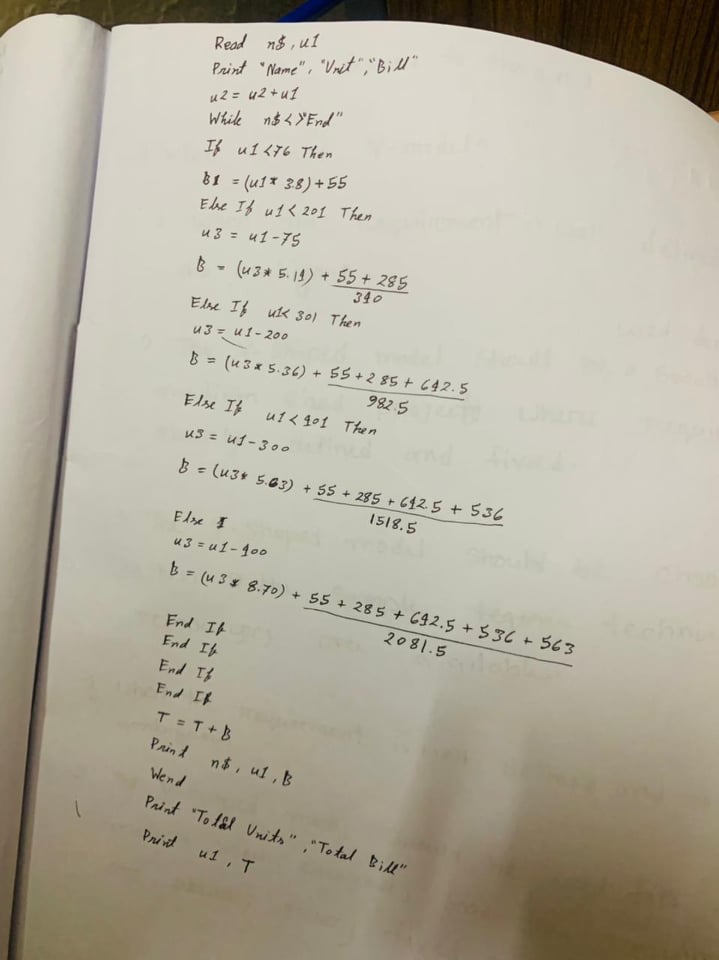 Read n$, u1
Print "Name", "Unit", "Bill"
u2 = u2 + u1
While n$ <> "End"
If u1 <76 Then
B1 = (u1 * 3.8) + 55
Else If u1 < 201 Then
u3 = u1-75
B = (u3* 5.14) + 55 + 285
340
Else If u1< 301 Then
u3 = u1-200
B = (u3* 5.36) + 55 + 285 + 642.5
982.5
Else If u1 < 401 Then
u3 = u1-300
B = (u3* 5.63) + 55 + 285 + 642.5 + 536
1518.5
Else
u3 = u1-400
B = (u3 * 8.70) + 55 + 285 + 642.5 + 536 + 563
2081.5
End If
End If
End If
End If
T = T + B
Print n$, u1, B
Wend
Print "Total Units", "Total Bill"
Print u1, T